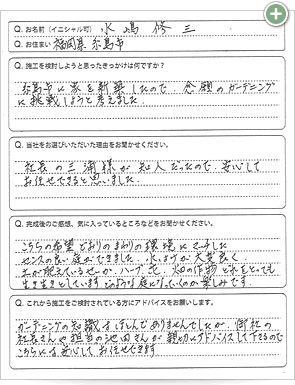 Q. お名前（イニシャル可） 水嶋 修三
Q. お住まい 福岡県糸島市
Q. 施工を検討しようと思ったきっかけは何ですか？
糸島市に家を新築したので、念願のガーデニング
に挑戦しようと考えました。
Q. 当社をお選びいただいた理由をお聞かせください。
社長の三浦様が知人だったので、安心して
お任せできると思いました。
Q. 完成後のご感想、気に入っているところなどをお聞かせください。
こちらの希望どおりのまわりの環境にマッチした
センスの良い庭ができました。水はけが大変良く
土が肥えているせいか、ハーブ、花、畑の作物どれをとっても
生き生きとしています。
Q. これから施工をご検討されている方にアドバイスをお願いします。
ガーデニングの知識はほとんどありませんでしたが、御社の
社長さんや担当の池田さんが親切にアドバイスして下さるので
こちらは安心してお任せできます